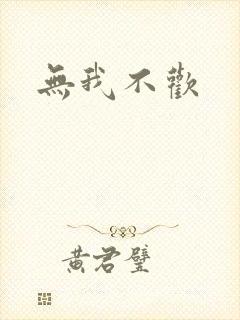 無我不歡
黃君璧